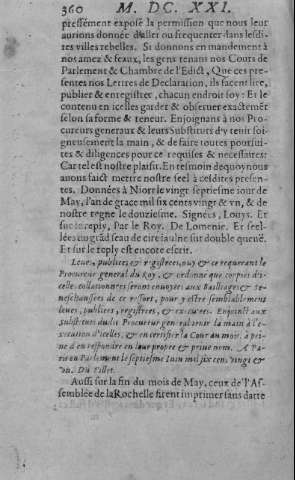 360 M. DC. XXI.
pressément exposé la permission que nous leur
aurions donnée d'aller ou frequenter dans lesdi-
tes villes rebelles. Si donnons en mandement à
nos amez & feaux, les gens tenans nos Cours de
Parlement & Chambre de l'Edict, Que ces pre-
sentes nos Lettres de Declaration, ils facent lire,
publier & enregistrer, chacun endroit soy: Et le
contenu en icelles garder & observer exactemẽt
selon sa forme & teneur. Enjoignans à nos Pro-
cureurs generaux & leurs Substituts d'y tenir soi-
gneusement la main, & de faire toutes poursui-
tes & diligences pour ce requises & necessaires:
Car tel est nostre plaisir. En tesmoin dequoy nous
avons faict mettre nostre seel à cesdites presen-
tes. Données à Niort le vingt septiesme jour de
May, l'an de grace mil six cents vingt & vn, & de
nostre regne le douziesme. Signées, Louys. Et
sur le reply, Par le Roy. De Lomenie. Et seel-
lées du grãd seau de cire jaulne sur double queuë.
Et sur le reply est encore escrit.
Leuës, publiées & registrees, ouy & ce requerant le
Procureur general du Roy, & ordonné que copies d'i-
celle, collationnées seront envoyées aux Bailliages & Se-
neschaussées de ce ressort, pour y estre semblablement
leuës, publiées, registrées, & executées. Enjoinct aux
substituts dudit Procureur general tenir la main à l'e-
xecution d'icelles, & en certifier la Cour au mois, à pei-
ne d'en respondre en leur propre & privé nom. A Pa-
ris en Parlement le septiesme Iuin mil six cens vingt &
vn. Du Tillet.
Aussi sur la fin du mois de May, ceux de l'As-
semblée de la Rochelle firent imprimer sans datte